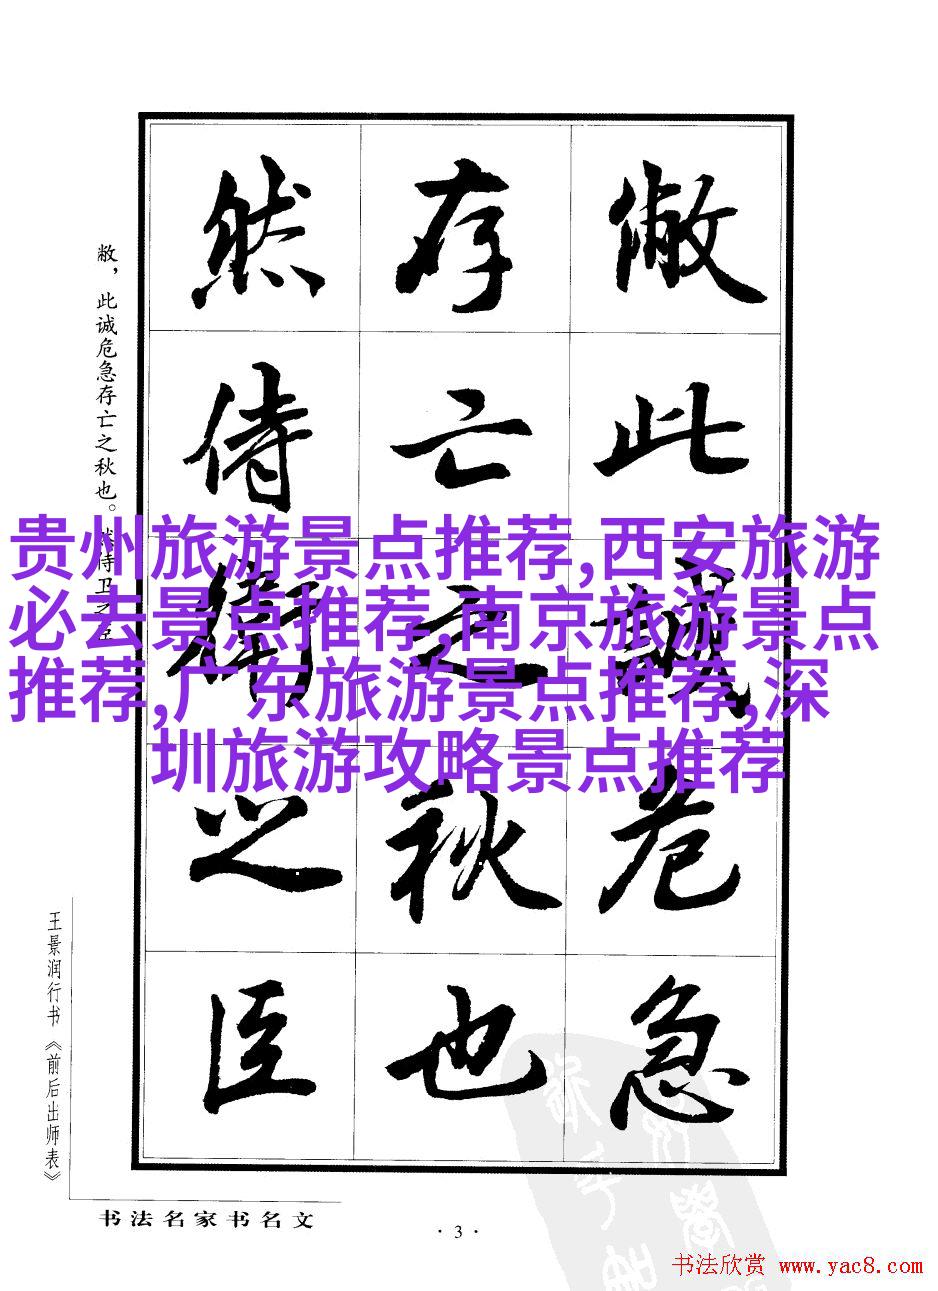 敝此诚危急
存亡之秋也
然侍衛之臣
敝，此诚危急存亡之秋也。然侍卫之臣
贵州旅游景点推荐,西安旅游
必去景点推荐,南京旅游景点
推荐,广东旅游景点推荐,深
圳旅游攻略景点推荐
王景润行书《前后出师表》
书法名家书名文
·3·
书法欣赏 www.yac8.com